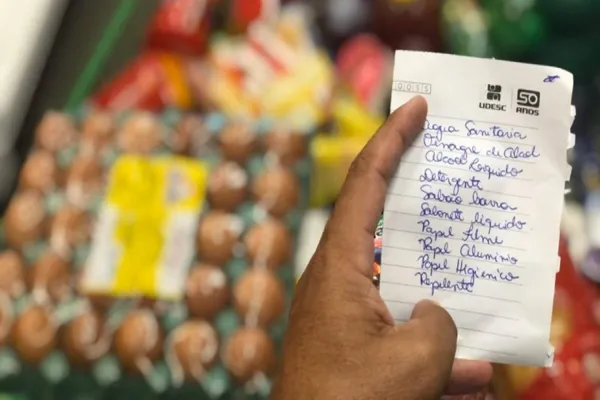 UDESC 50 ANOS
Água Sanitária
Vinagre de Álcool
Álcool Líquido
Detergente
Sabão barra
Sabonete líquido
Papel Filme
Papel Alumínio
Papel Higiênico
Repelente